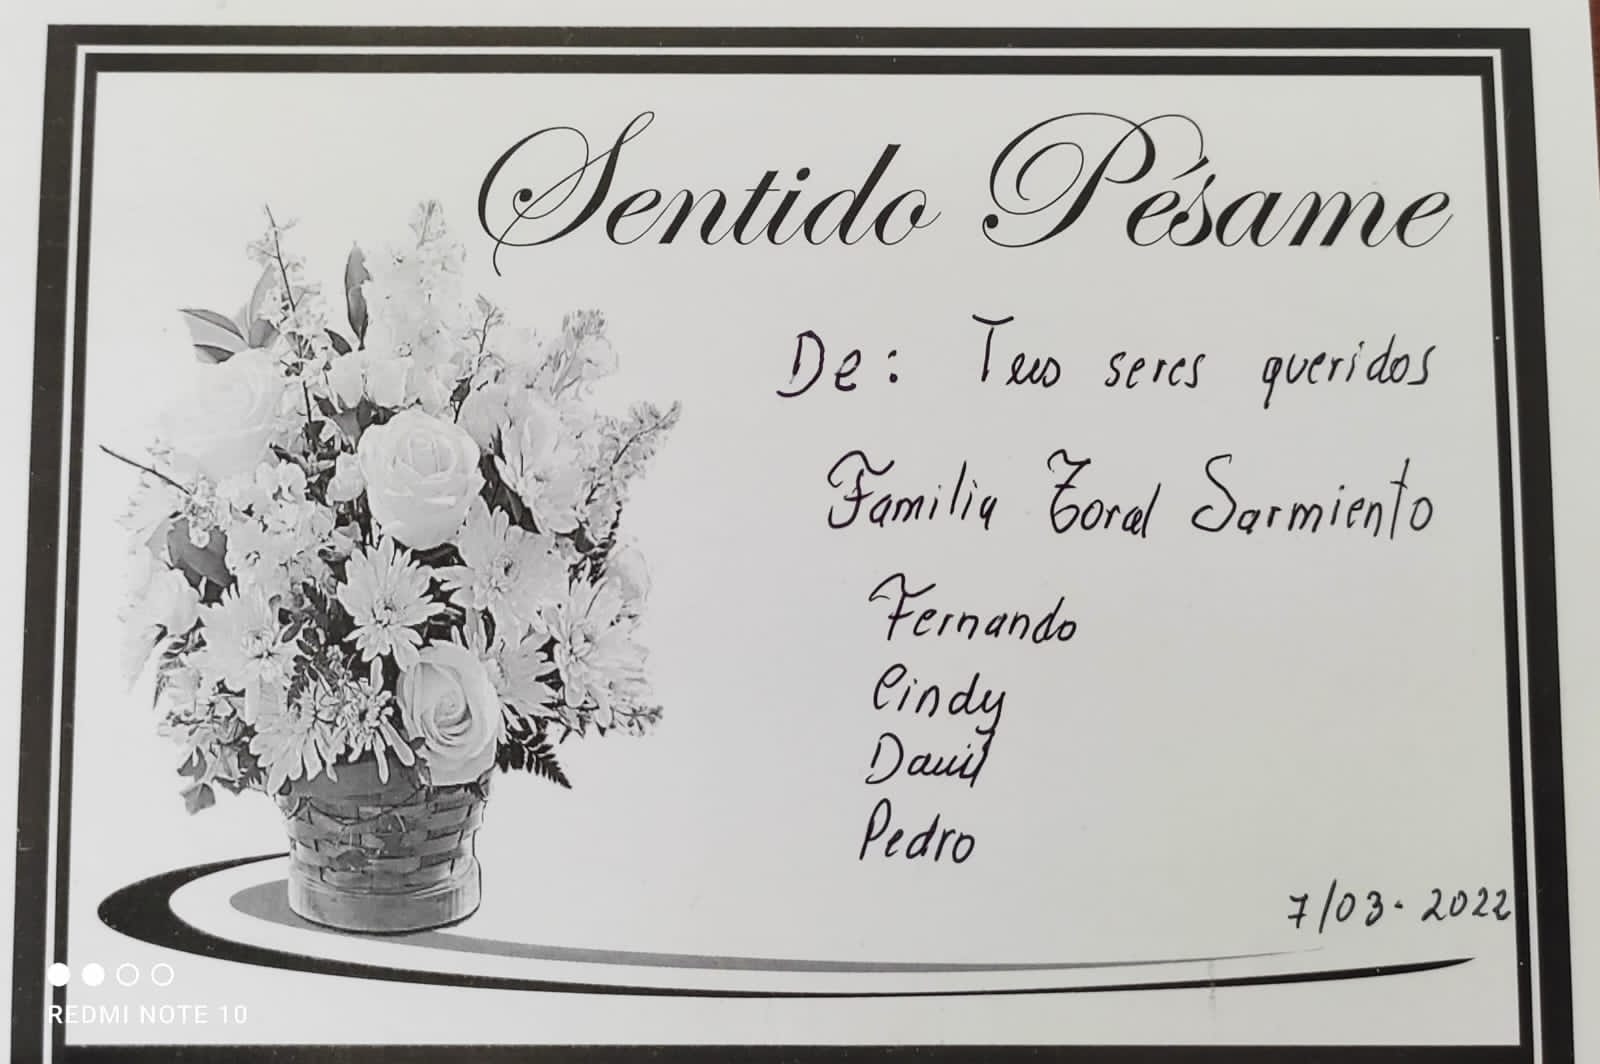 Sentido Pésame
De: Tus seres queridos
Familia Toral Sarmiento
Fernando
Cindy
David
Pedro
7/03-2022
REDMI NOTE 10